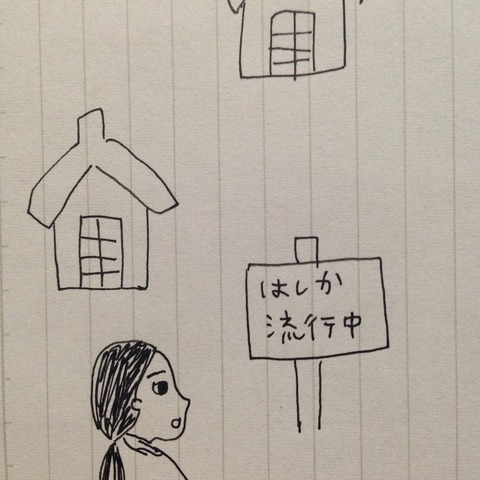 はしか
流行中